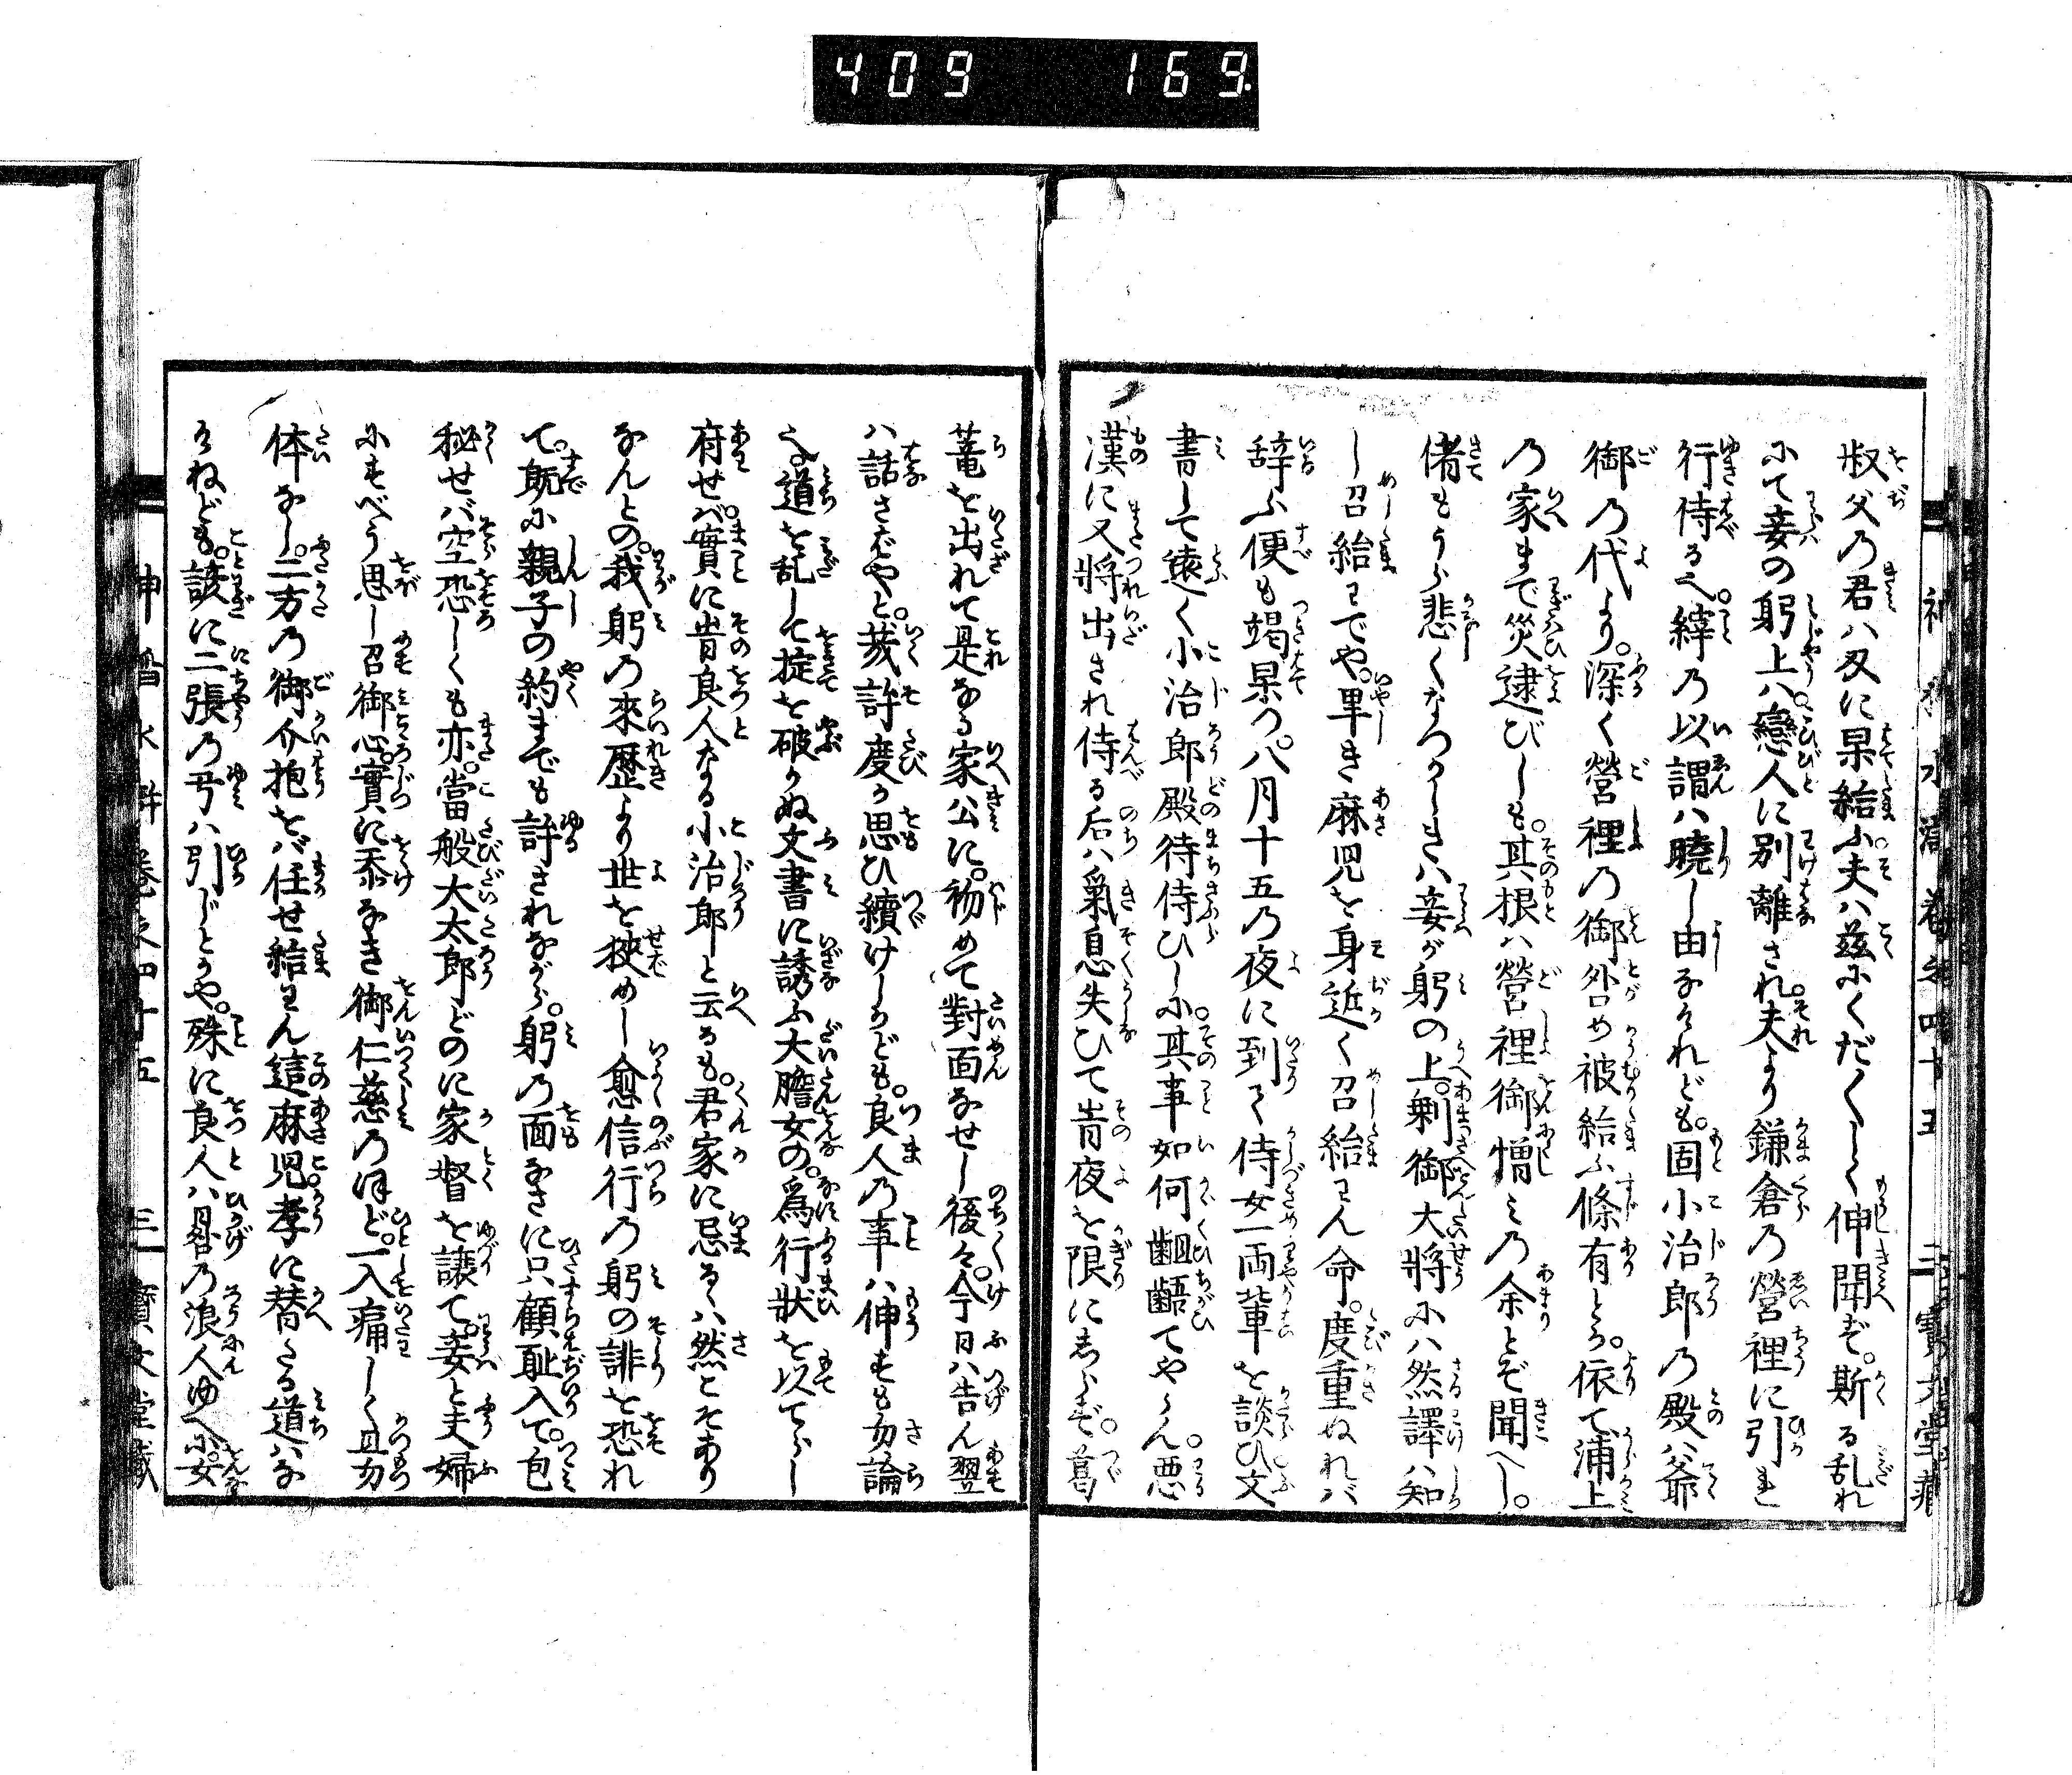 409 169.
叔父乃君ハ刄に杲給ふ。夫ハ茲にくだ〱しく伸聞ず。斯る乱れ
にて妾の躬上ハ。戀人に別離され。夫より鎌倉乃營裡に引れ
行侍るへ。縡乃以謂ハ曉し由なけれども。固小治郎乃殿ハ爺
御乃代より。深く營裡の御咎め被給ふ條有とろ。依て浦上
乃家まで災逮びしも。其根ハ營裡御憎ミ乃余とぞ聞へし。
偖もうら悲くなつかしきハ妾が躬の上。剰御大将にハ然譯ハ知
し召給ハでや。卑き麻児を身近く召給ハん命。度重ぬれバ
辞ふ便も竭杲つ。八月十五乃夜に到て侍女一両輩を談ひ文
書して遠く小治郎殿待侍ひしに。其事如何齟齬てやらん。悪
漢に又將出され侍る后ハ氣息失ひて其夜を限にあらず。葛
篭を出れて是なる家公に。初めて對面なせし後々。今日ハ告ん翌
ハ話さばやと。幾許度か思ひ續けしかども。良人乃事ハ伸すも勿論
へ道を乱して掟を破かぬ文書に誘ふ大膽女の。爲行状を以てらし
府せバ。實に其良人なる小治郎と云るも。君家に忌るハ然こそあり
なんとの。我躬乃來歴より世を狹めし愈信行乃躬の誹を恐れ
て。既に親子の約までも許されながら。躬乃面なさに只顧耻入て。包
秘せバ空恐しくも亦。當般大太郎どのに家督を譲て。妾と夫婦
にすべう思し召御心。實に忝なき御仁慈乃ほど。一入痛しく且勿
体なし。二方乃御介抱をバ任せ給ハん這麻児孝に替たる道ハな
けれども。諺に二張乃弓ハ引じとかや。殊に良人ハ日影乃浪人ゆへに。女
神稻水滸巻之四十五 三 寶文堂藏